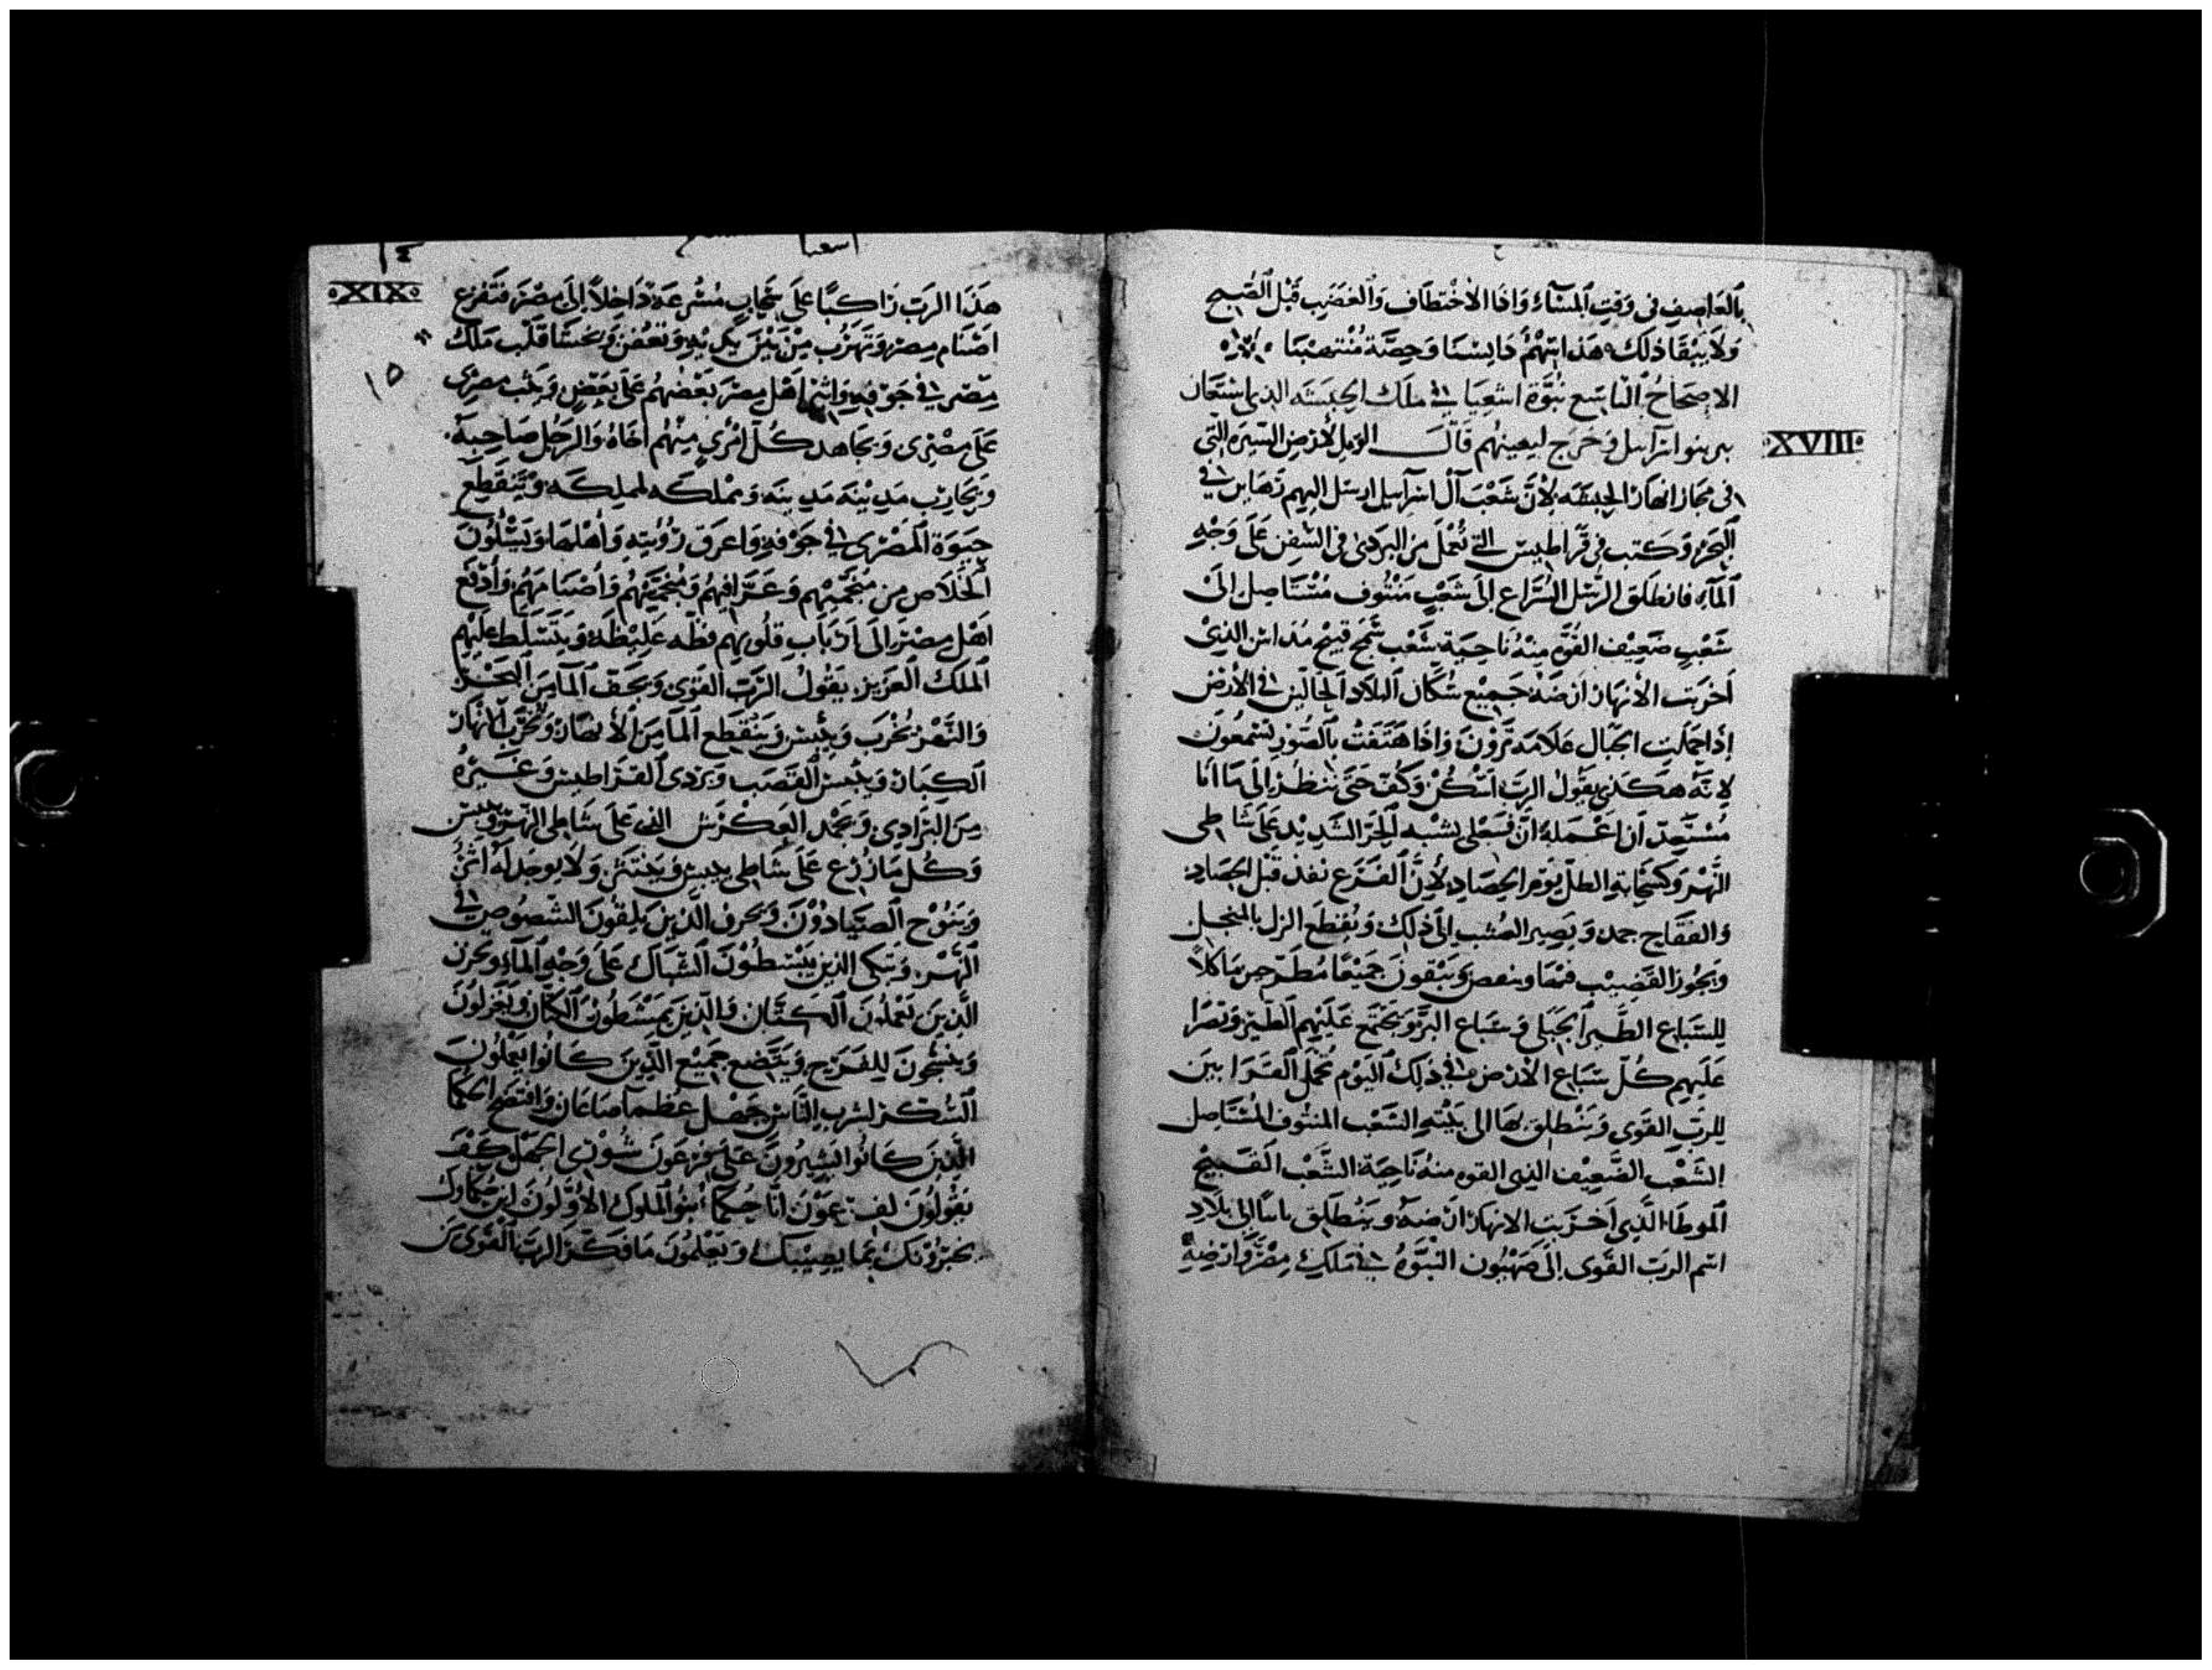 بالعاصف فى وقت المسآء وافا الاختطاف والغضب قبل الصبح
ولا يبقا ذلك هذا سهم دايسنا وحصة منتهبنا
الاصحاح التاسع نبوة اشعيا في ملك الحبشه الذى استعان
به بنو اسرآيل وخرج ليعينهم قال الويل للارض السره التى
فى مجاز انهار الحبشه لان شعب آل اسرآييل ارسل اليهم رهاين في
البحر وكتب فى قراطيس التى تعمل من البردى فى السفن على وجه
المآء فانطلق الرسل السراع الى شعب منتوف مستاصل الى
شعب ضعيف القوم منه ناحية شعب سمج قبيح مداس الذى
اخربت الانهار ارضه جميع سكان البلاد الجالس في الارض
اذا حملت الجبال علامه ترون واذا هتفت بالصور تسمعون
لانه هكذى يقول الرب اسكن وكف حتى ننظر الى ما انا
مستعد ان اعمله ان فعلى يشبه الحر الشديد على شاطى
النهر وكسحابة الطل يوم الحصاد لان الفزع نفذ قبل الحصاد
والفقاح جمد ويصير العشب الى ذلك وتقطع الزل بالمنجل
ويجوز القضيب ويبقون جميعا مطرحين ماكلا
للسباع الطير الجبلى وسباع البر ويجتمع عليهم الطير وتصرا
عليهم كل سباع الارض في ذلك اليوم تحمل القرابين
للرب القوى وينطلق بها الى بيته الشعب المنتوف المستاصل
الشعب الضعيف الذى القوم منه ناحية الشعب القبيح
الموطا الذى اخربت الانهار ارضه وينطلق الى بلاد
اسم الرب القوى الى صهيون النبوه في ملك مصر وارضه
XVIII
اشعيا
١٤
XIX
١٥
هذا الرب راكبا على سحاب مسرعة داخلا الى مصر فتفزع
اصنام مصر وتهرب من بين يديه وتعض ويحسا قلب ملك
مصر في جوفه واثير اهل مصر بعضهم على بعض وحث مصرى
على مصرى ويجاهد كل امرى منهم اخاه والرجل صاحبه
ويحارب مدينة مدينه ومملكه لمملكه وتنقطع
المصرى في جوفه واعرق رؤيته واهلها ويسلون
الخلاص من منجميهم وعرافيهم واصنامهم وادفع
اهل مصر الى ارباب قلوبهم فظه غليظة ويتسلط عليهم
الملك العزيز يقول الرب القوى ويجف المآ من البحر
والنهر تخرب وييبس وينقطع المآ من الانهار وتخرب الانهار
الكبار وييبس القصب وبردى القراطيس وغيره
من البرادى ويجمد العكرش التى على شاطى النهر وييبس
وكل ما زرع على شاطى ييبس وينتثر ولا يوجد له اثر
وينوح الصيادون ويحزن الذين يلقون الشصوص في
النهر وتبكى الذين يبسطون الشباك على وجه المآء ويحزن
الذين يعملون الكتان والذين يمشطون الكتان ويغزلون
وينسجون للفرح ويتضع جميع الذين كانوا يعملون
السكر لشرب الناس حصل عظمآ صاعان وافتضح الحكما
الذين كانوا يشيرون على فرعون شورى الجهل كيف
يقولون لفرعون انا حكما بنو الملوك الاولون اين حكماوك
يخبرونك بما يصيبك ويعلمون ما فكر الرب القوى